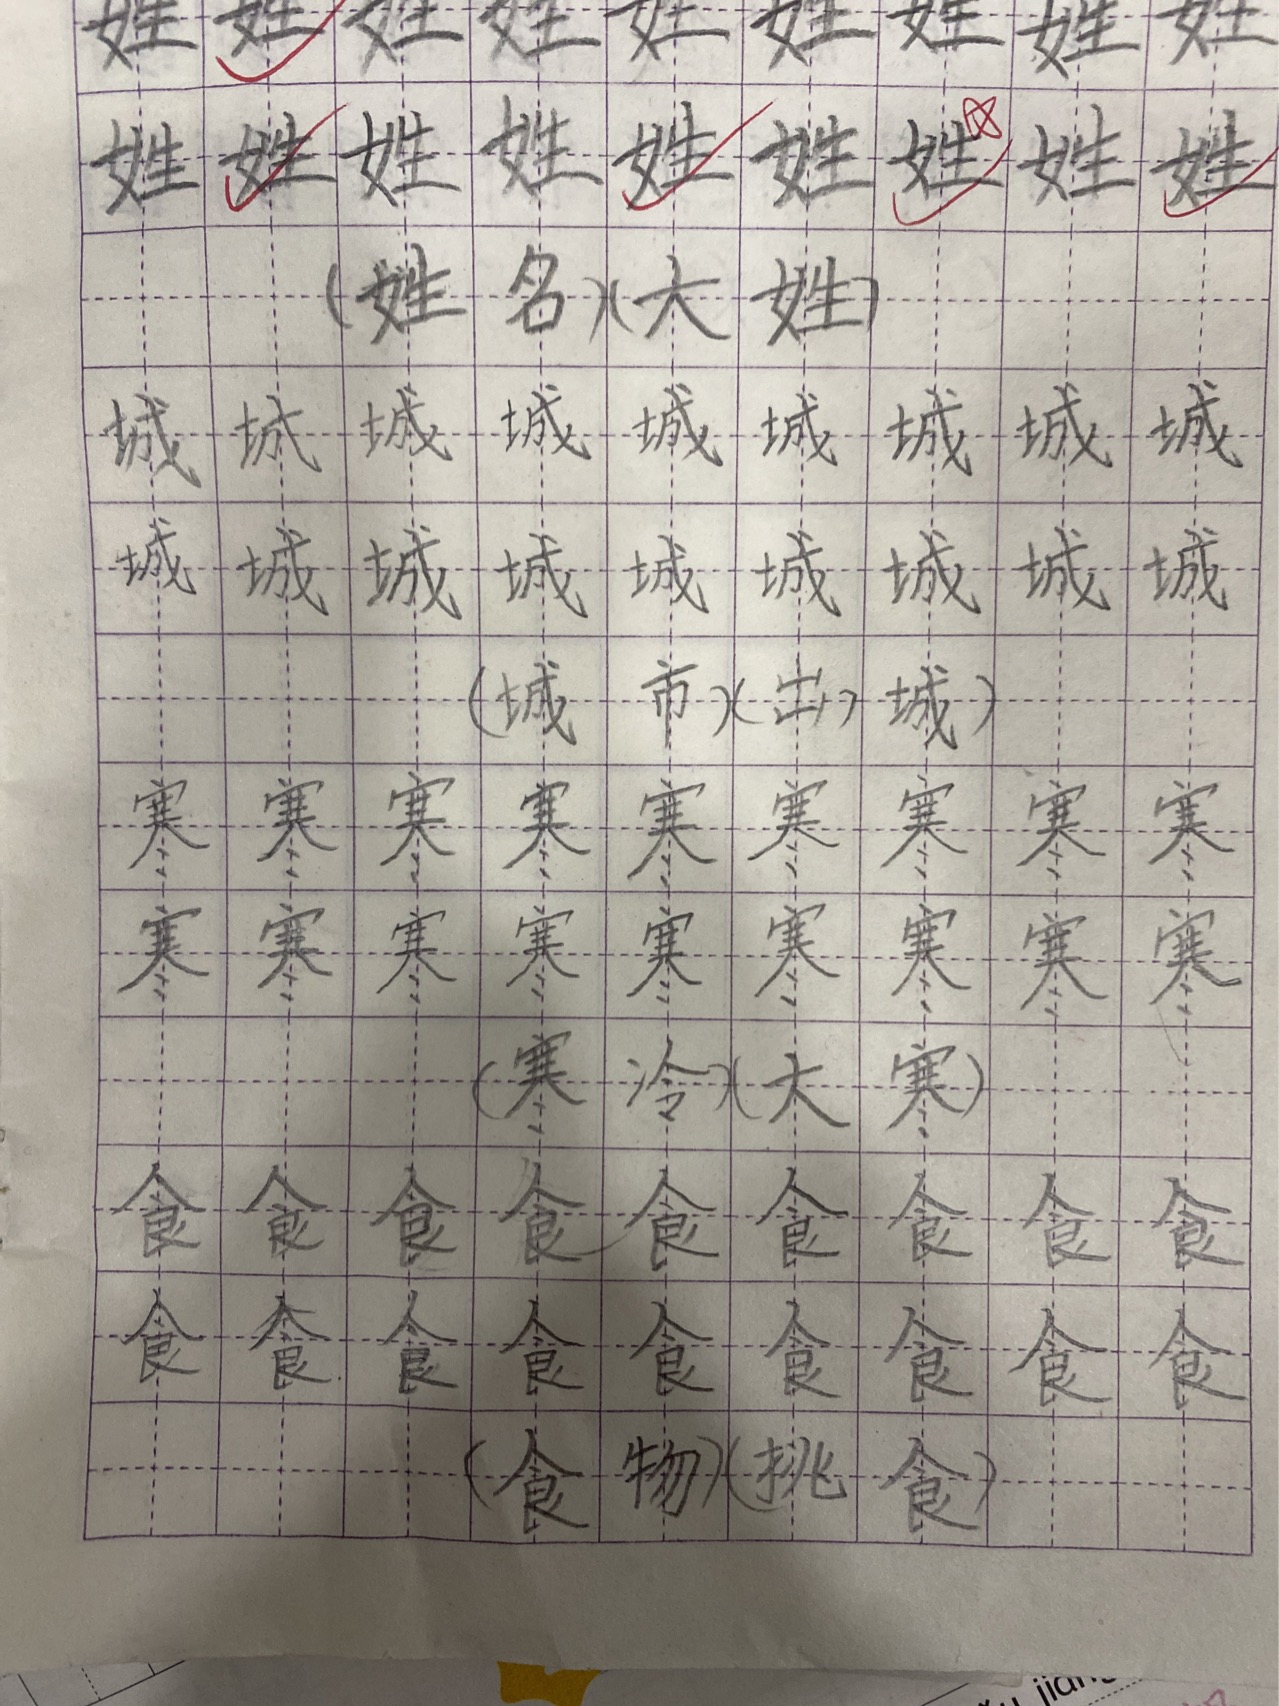 姓姓姓姓姓姓姓姓姓
姓姓姓姓姓姓姓姓姓
(姓名)(大姓)
城城城城城城城城城
城城城城城城城城城
(城市)(出城)
寒寒寒寒寒寒寒寒寒
寒寒寒寒寒寒寒寒寒
(寒冷)(大寒)
食食食食食食食食食
食食食食食食食食食
(食物)(挑食)